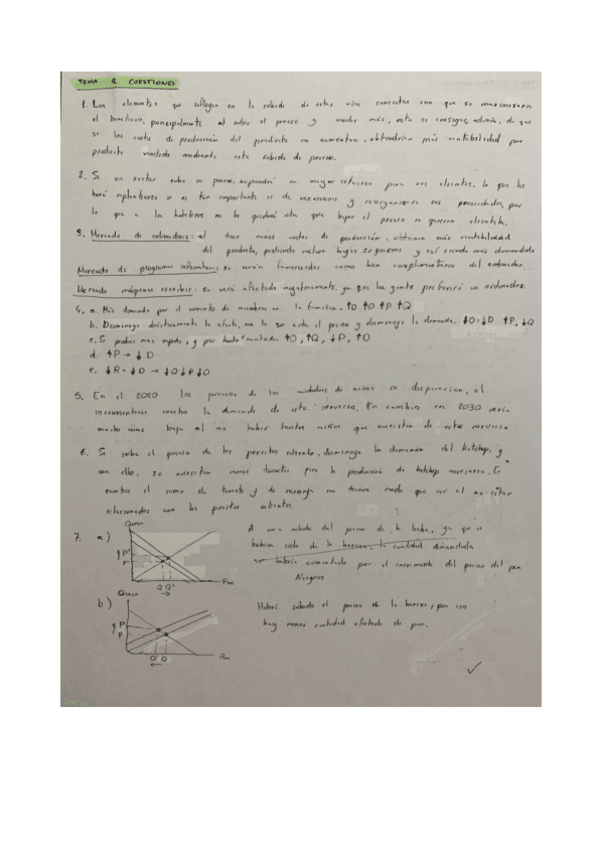 TEMA 2 CUESTIONES
1. Los elementos que influyen en la subida de estas son que se maximizaría
el beneficio, principalmente al subir el precio y vender más, esto se consigue, además, de que
si los costes de producción del producto no aumentan, obtendrían más rentabilidad por
producto vendido mediante esta subida de precio.
2. Si un sector sube su precio, supondrá un mayor esfuerzo para sus clientes, lo que les
hará replantearse si es tan importante ir de vacaciones y reorganizarse sus prioridades, por
lo que a los hoteleros no les quedará otra que bajar el precio si quieren clientela.
3. Mercado de ordenadores: al tener menos costes de producción, obtienen más rentabilidad
del producto, pudiendo incluso bajar y así siendo más demandado
Mercado de programas informáticos: se verán favorecidos como bien complementario del ordenador.
Mercado máquinas escribir: se verá afectado negativamente, ya que la gente preferirá un ordenador.
4. a. Más demanda por el aumento de miembros en la familia. ↑D ↑O ↑P ↑Q
b. Disminuye drásticamente la oferta, con lo que sube el precio y disminuye la demanda. ↓O=↓D ↑P, ↓Q
c. Se produce más rápido, y por tanto ↑O, ↑Q, ↓P, ↑D
d. ↑P → ↓D
e. ↓R = ↓D → ↓Q ↓P ↓O
5. En el 2020 los precios de los cuidados de niños se dispararían, al
incrementarse mucho la demanda de este servicio. En cambio en 2030 sería
mucho más baja al no haber tantos niños que necesiten de este servicio
6. Si sube el precio de los perritos caliente, disminuye la demanda del ketchup, y
con ello, se necesitan menos tomates para la producción de ketchup necesaria. En
cambio el zumo de tomate y de naranja no tienen nada que ver al no estar
relacionados con los perritos calientes
7. a)
P'
P
Q Q'
Pan
A una subida del precio de la leche, ya que si
hubiera sido de la harina, la cantidad demandada
no habría aumentado por el incremento del precio del pan
Ninguna
b)
P'
P
Q' Q
Pan
Habrá subido el precio de la harina, por eso
hay menos cantidad ofertada de pan.